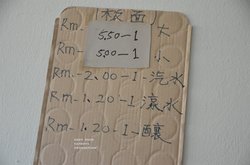 板面
Rm- 5.50-1 大
Rm- 5.00-1 小
Rm-2.00-1-汽水
Rm-1.20-1-涼水
Rm-1.20-1-酿